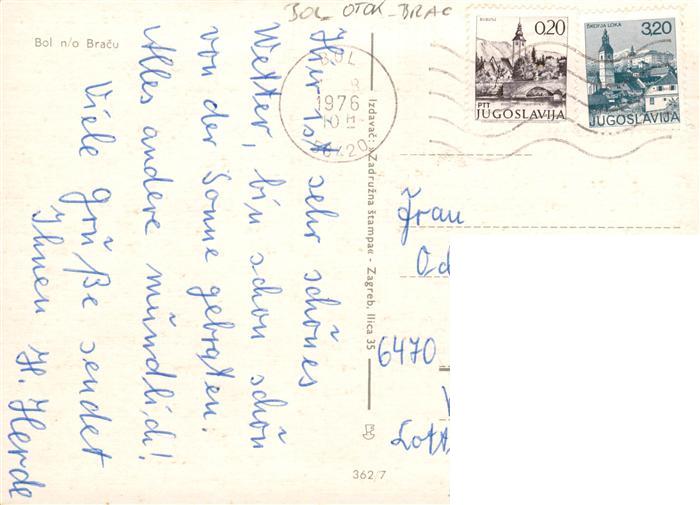 BOL OTOK-BRAC
Bol n/o Braču
Hier ist sehr schönes
Wetter, bin schon schön
von der Sonne gebraten.
Alles andere mündlich!
Viele Grüße sendet
Ihnen H. Herde
Izdavač: »Zadružna štampa« - Zagreb, Ilica 35
362/7
BOL
1976
0.20
PTT
JUGOSLAVIJA
ŠKOFJA LOKA
3,20
JUGOSLAVIJA
Frau
6470